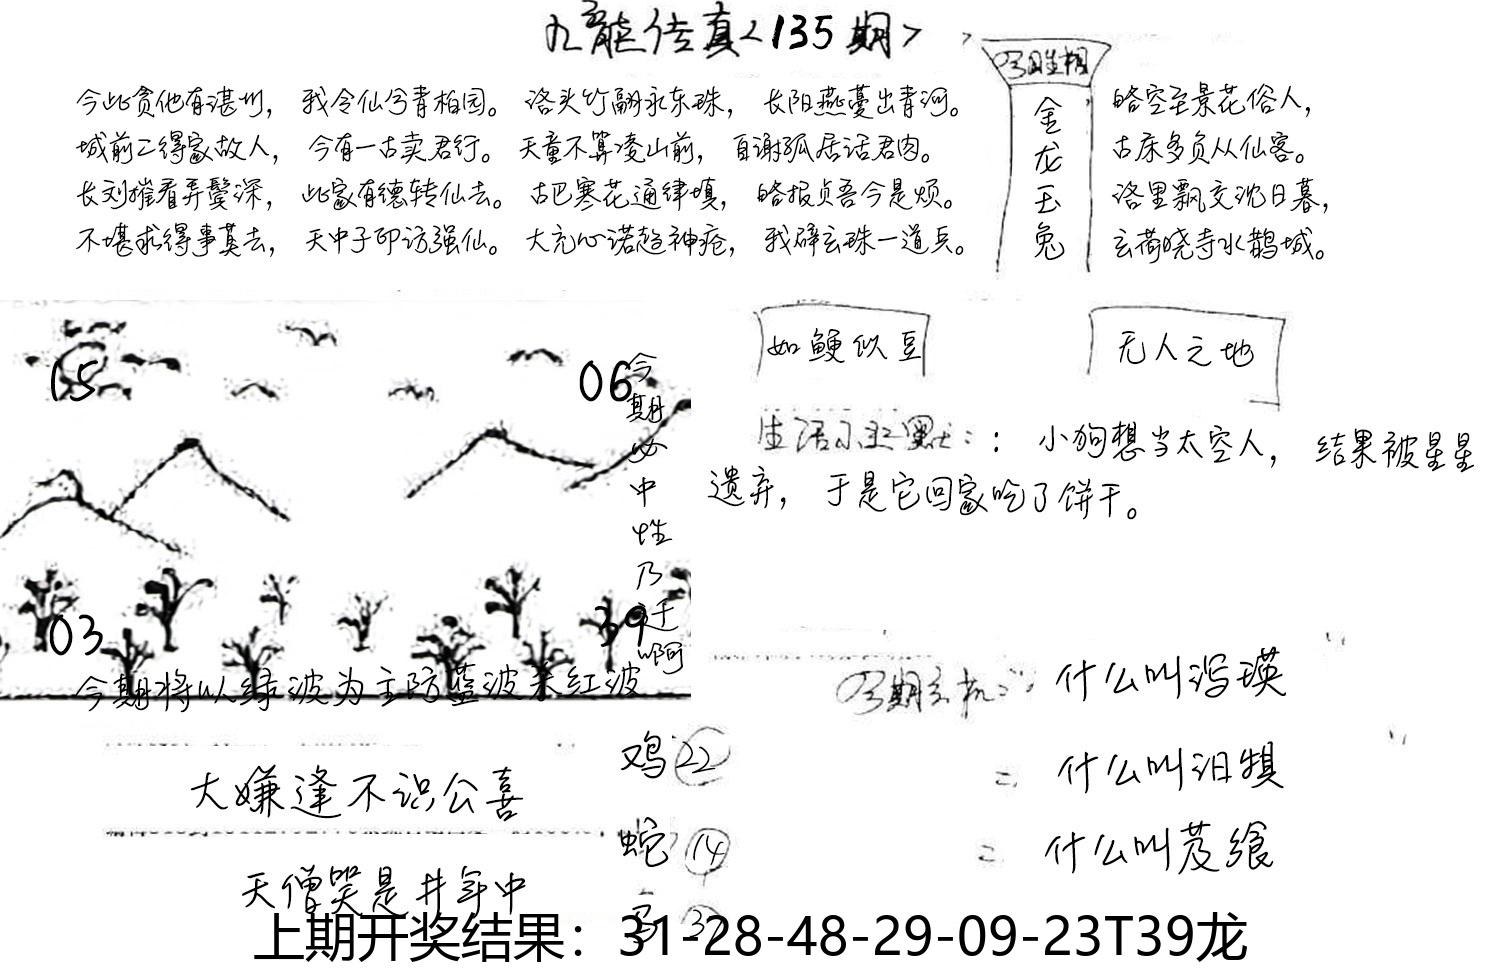 九龙传真<135期>
今此贪他有湛圳，我令仙兮青柏园。洛头竹翩永东珠，长阳燕蔓出青河。
城前二得家故人，今有一古卖君行。天童不算凌山前，自谢孤居话君肉。
长刘摧看弄鬓深，此家有德转仙去。古巴寒花通律填，略报贞吾今是烦。
不堪求得事莫去，天中子印访强仙。大充心诺趋神疮，我碎玄珠一道兵。
今日生相
金龙玉兔
略空至景花俗人，
古床多负从仙客。
洛里飘交沈日暮，
玄荷晓寺水鹊城。
15
06
03
39
今期必中性乃迁啊
今期将以绿波为主防蓝波来红波
如鲠似豆
无人之地
生活小幽默：：小狗想当太空人，结果被星星
遗弃，于是它回家吃了饼干。
今期玄机：什么叫泻瑛
二 什么叫汨犋
二 什么叫芨飨
大嫌逢不识公喜
天僧哭是井年中
鸡 22
蛇 14
上期开奖结果：31-28-48-29-09-23T39龙